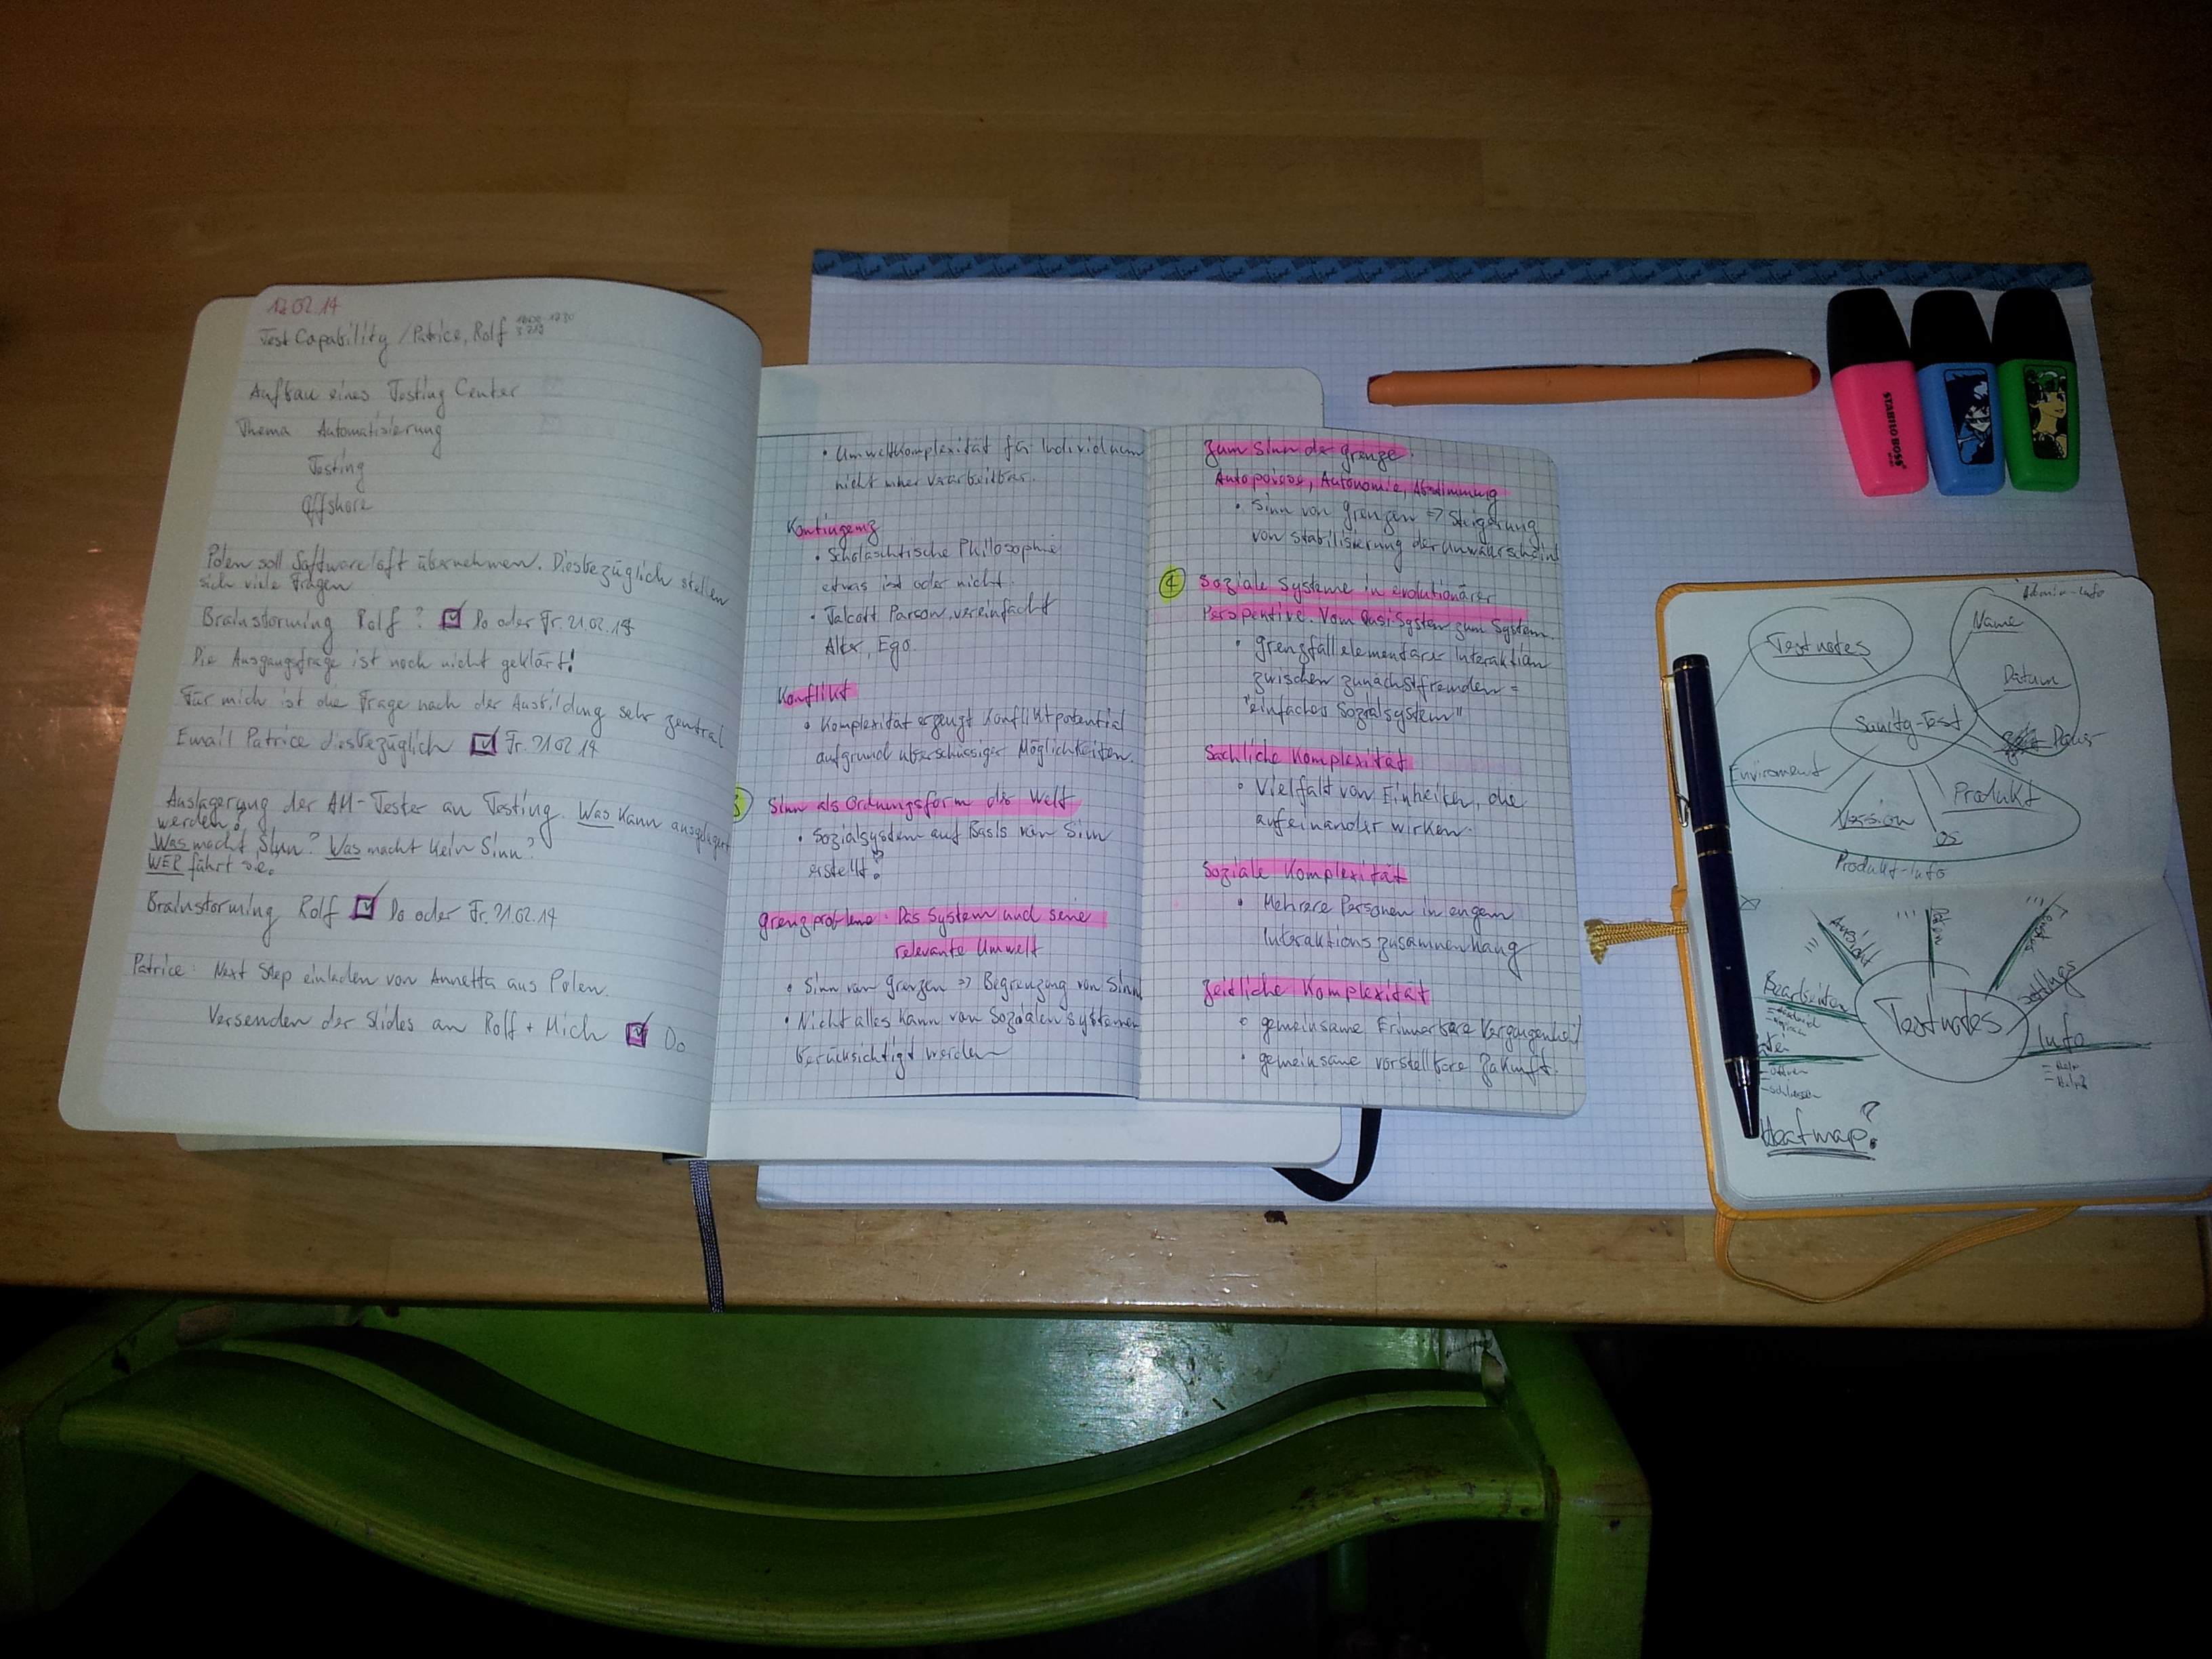 02.14
Test Capability / Patrice, Rolf
Aufbau eines Testing Center
Thema Automatisierung
Testing
Offshore
Polen soll Softwareloft übernehmen. Diesbezüglich stellen
sich viele Fragen
Brainstorming Rolf? Do oder Fr. 21.02.14
Die Ausgangsfrage ist noch nicht geklärt!
Für mich ist die Frage nach der Ausbildung sehr zentral
Email Patrice diesbezüglich Fr. 21.02.14
Auslagerung der AM-Tester an Testing. Was kann ausgelagert
werden?
Was macht Sinn? Was macht kein Sinn?
WER führt sie.
Brainstorming Rolf Do oder Fr. 21.02.14
Patrice: Next Step einladen von Annetta aus Polen.
Versenden der Slides an Rolf + Mich Do
• Umweltkomplexität für Individuum
nicht mehr verarbeitbar.
Kontingenz
• Scholaschtische Philosophie
etwas ist oder nicht.
• Talcott Parson vereinfacht
Alter, Ego.
Konflikt
• Komplexität erzeugt Konfliktpotential
aufgrund überschüssiger Möglichkeiten.
Sinn als Ordnungsform der Welt
• Sozialsystem auf Basis von Sinn
erstellt?
Grenzprobleme: Das System und seine
relevante Umwelt
• Sinn von Grenzen => Begrenzung von Sinn
• Nicht alles kann von Sozialen Systemen
berücksichtigt werden
Zum Sinn der Grenze:
Autopoiese, Autonomie, Abstimmung
• Sinn von Grenzen => Steigerung
von stabilisierung der Unwahrscheinl
4 Soziale Systeme in evolutionärer
Perspektive. Vom Quasi System zum System.
• Grenzfall elementarer Interaktion
zwischen zunächst fremden =
"einfaches Sozialsystem"
Sachliche Komplexität
• Vielfalt von Einheiten, die
aufeinander wirken.
Soziale Komplexität
• Mehrere Personen in engem
Interaktionszusammenhang
Zeitliche Komplexität
• gemeinsame Erinnerbare Vergangenheit
• gemeinsame vorstellbare Zukunft.
STABILO BOSS
Admin-Info
Testnotes
Name
Datum
Sanity-Test
Dauer
Enviroment
Version
OS
Produkt
Produkt-Info
Ansicht
Bearbeiten
Testnotes
settings
Info
Heatmap?